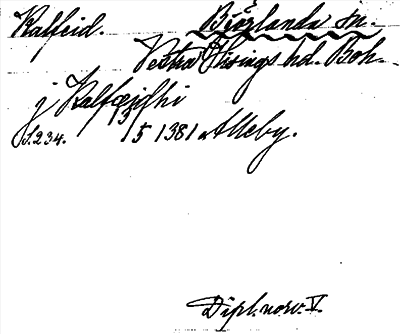 Kalfeid. Björlanda sn.
Västra Hisings hd. Boh.
j Kalfæidhi
S. 234. 13/5 1381 Alleby.
Dipl. norv. V.